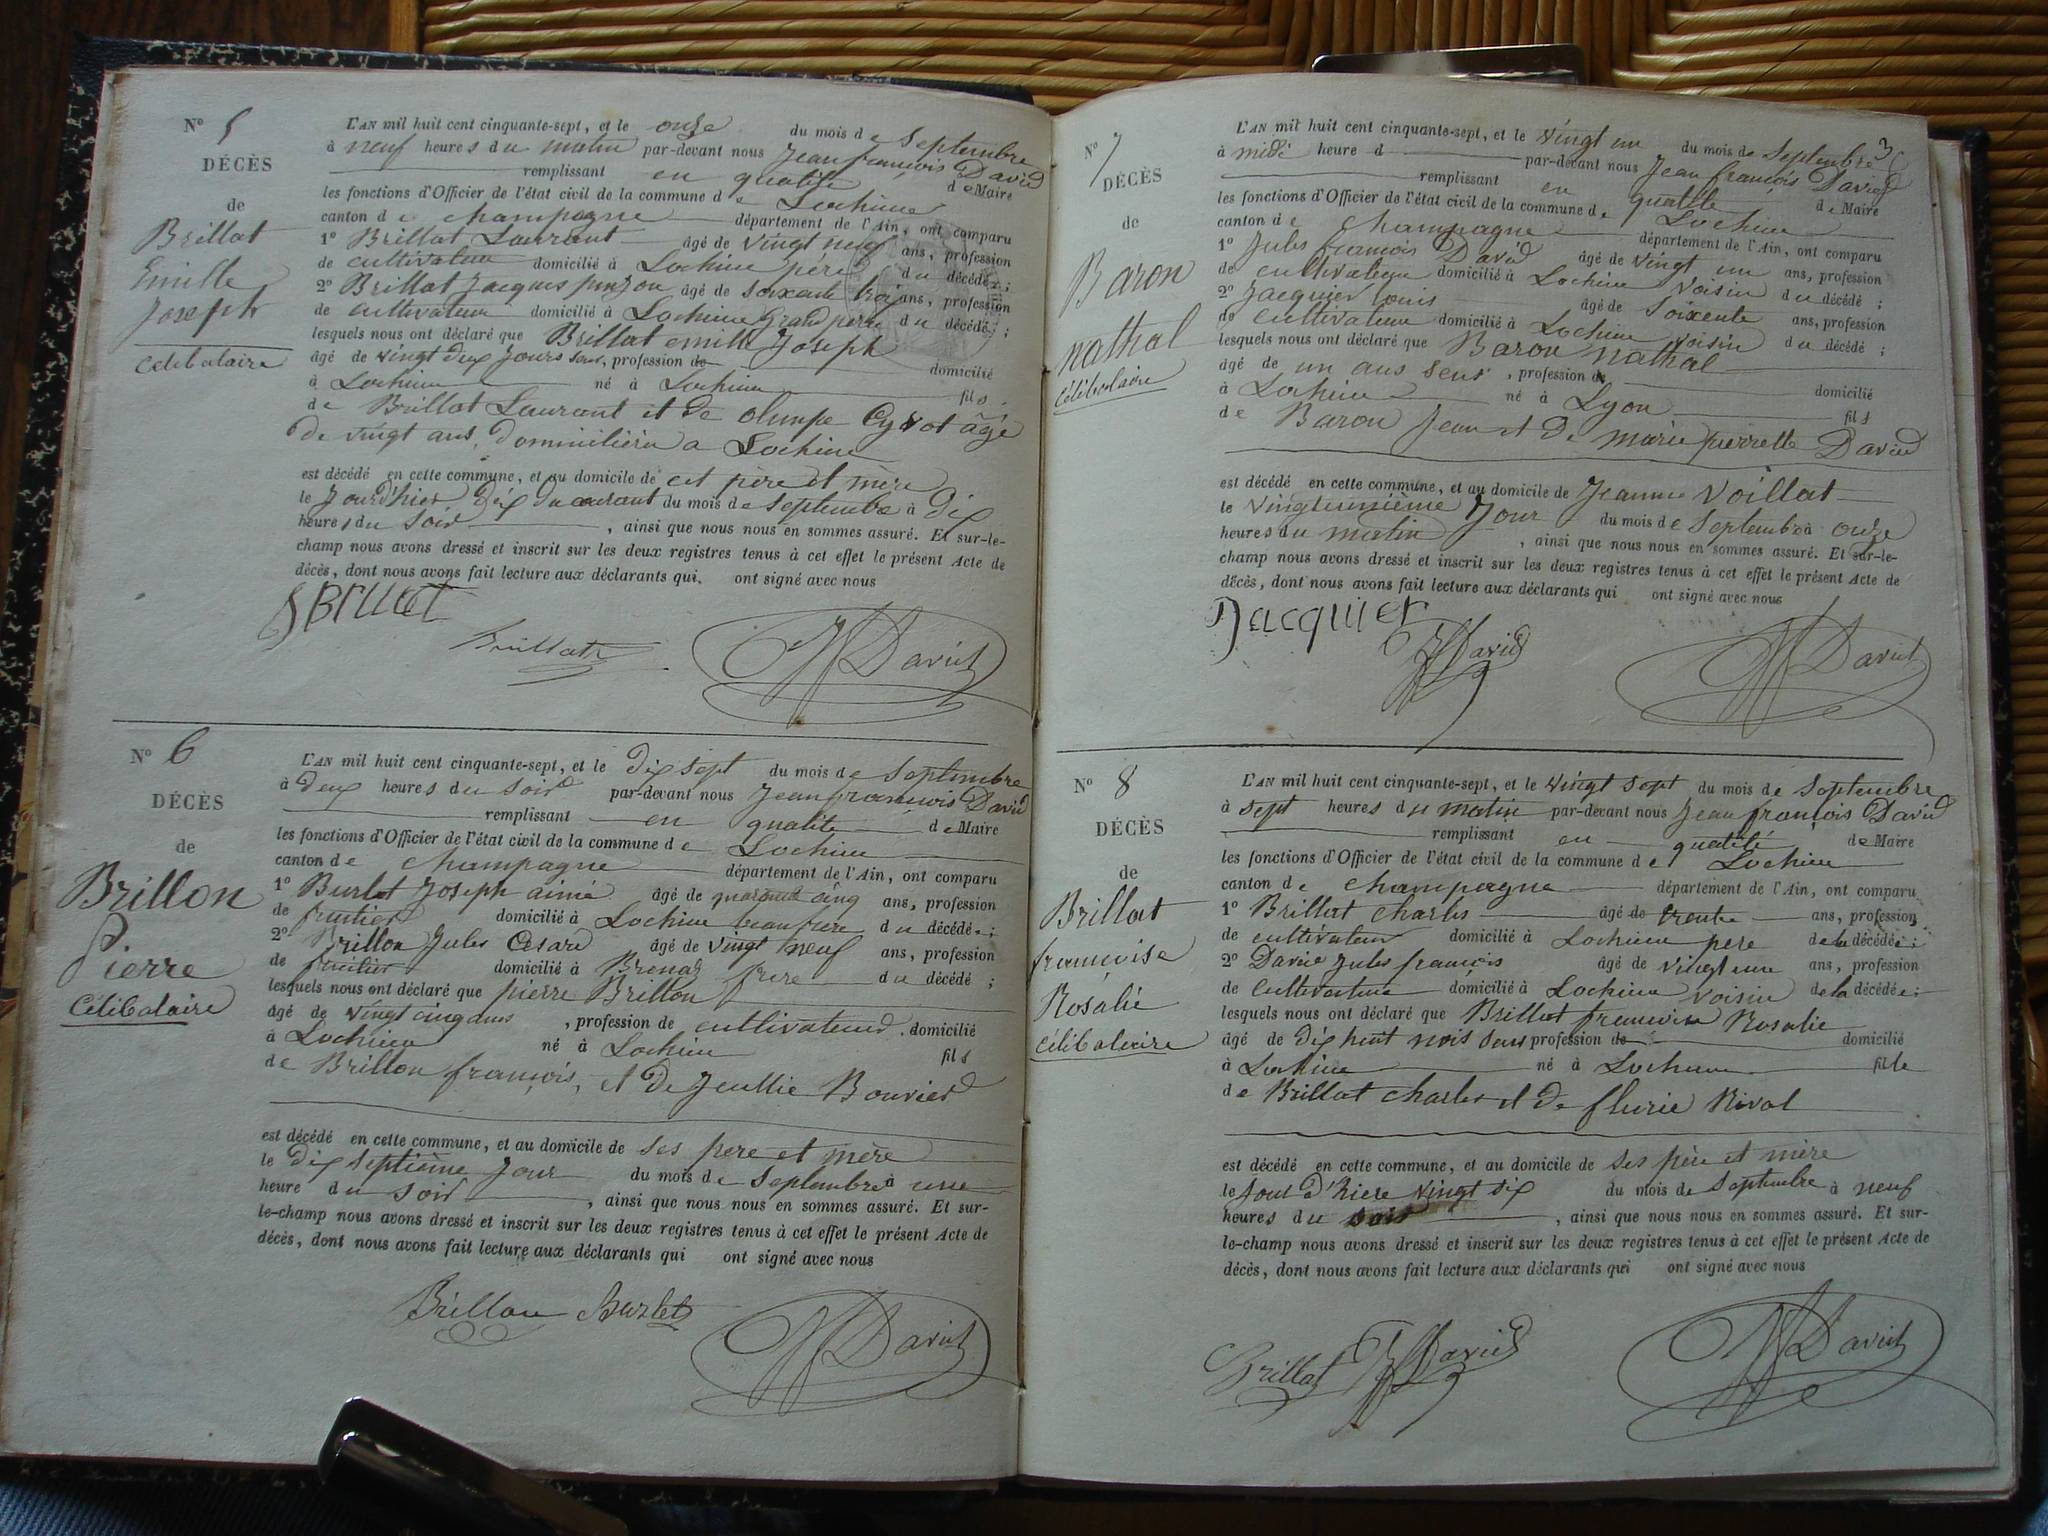 N° 5
DÉCÈS
de
Brillat
Emille
Joseph
Célibataire
L'AN mil huit cent cinquante-sept, et le onze du mois de Septembre
à neuf heures du matin par-devant nous Jean françois David
remplissant en qualité de Maire
les fonctions d'Officier de l'état civil de la commune de Lochieu
canton de Champagne département de l'Ain, ont comparu
1° Brillat Laurant âgé de vingt neuf ans, profession
de cultivateur domicilié à Lochieu père du décédé;
2° Brillat Jacques âgé de soixante trois ans, profession
de cultivateur domicilié à Lochieu Grand père du décédé;
lesquels nous ont déclaré que Brillat emille Joseph
âgé de vingt deux Jours sans, profession de domicilié
à Lochieu né à Lochieu fils
de Brillat Laurant et de olimpe
de vingt ans, a Lochieu
est décédé en cette commune, et au domicile de cet père et mère
le Jourd'hier dix du courant du mois de Septembre à dix
heures du Soir, ainsi que nous nous en sommes assuré. Et sur-le-
champ nous avons dressé et inscrit sur les deux registres tenus à cet effet le présent Acte de
décès, dont nous avons fait lecture aux déclarants qui ont signé avec nous
Brillat
Brillat
David
N° 6
DÉCÈS
de
Brillon
Pierre
Célibataire
L'AN mil huit cent cinquante-sept, et le dix sept du mois de Septembre
à deux heures du soir par-devant nous Jean françois David
remplissant en qualité de Maire
les fonctions d'Officier de l'état civil de la commune de Lochieu
canton de Champagne département de l'Ain, ont comparu
1° Burlet Joseph aimé âgé de quarante cinq ans, profession
de fruitier domicilié à Lochieu beau frere du décédé;
2° Brillon Jules César âgé de vingt neuf ans, profession
de fruitier domicilié à Brenaz frere du décédé;
lesquels nous ont déclaré que pierre Brillon
âgé de vingt cinq ans, profession de cultivateur domicilié
à Lochieu né à Lochieu fils
de Brillon françois, et de Jeullie Bouvier
est décédé en cette commune, et au domicile de ses pere et mère
le dix septième Jour du mois de Septembre à une
heure du soir, ainsi que nous nous en sommes assuré. Et sur-
le-champ nous avons dressé et inscrit sur les deux registres tenus à cet effet le présent Acte de
décès, dont nous avons fait lecture aux déclarants qui ont signé avec nous
Brillon Burlet
David
3
N° 7
DÉCÈS
de
Baron
nathal
Célibataire
L'AN mil huit cent cinquante-sept, et le vingt un du mois de Septembre
à midi heure d par-devant nous Jean françois David
remplissant en qualité de Maire
les fonctions d'Officier de l'état civil de la commune de Lochieu
canton de Champagne département de l'Ain, ont comparu
1° Jules françois David âgé de vingt un ans, profession
de cultivateur domicilié à Lochieu voisin du décédé;
2° Jacquier Louis âgé de Soixente ans, profession
de cultivateur domicilié à Lochieu voisin du décédé;
lesquels nous ont déclaré que Baron nathal
âgé de un ans sens, profession de domicilié
à Lochieu né à Lyon fils
de Baron Jean et de marie pierrette David
est décédé en cette commune, et au domicile de Jeanne Voillat
le vingtunnième Jour du mois de Septembre à onze
heures du matin, ainsi que nous nous en sommes assuré. Et sur-le-
champ nous avons dressé et inscrit sur les deux registres tenus à cet effet le présent Acte de
décès, dont nous avons fait lecture aux déclarants qui ont signé avec nous
Jacquier
David
David
N° 8
DÉCÈS
de
Brillat
françoise
Rosalie
Célibataire
L'AN mil huit cent cinquante-sept, et le vingt sept du mois de Septembre
à sept heures du matin par-devant nous Jean françois David
remplissant en qualité de Maire
les fonctions d'Officier de l'état civil de la commune de Lochieu
canton de Champagne département de l'Ain, ont comparu
1° Brillat Charles âgé de trente ans, profession
de cultivateur domicilié à Lochieu pere de la décédée;
2° David Jules françois âgé de vingt une ans, profession
de Cultivateur domicilié à Lochieu voisin de la décédée;
lesquels nous ont déclaré que Brillat françoise Rosalie
âgé de dix huit mois sans profession de domicilié
à Lochieu né à Lochieu fille
de Brillat Charles et de flurie Rival
est décédé en cette commune, et au domicile de ses père et mère
le Jour d'hiere vingt six du mois de Septembre à neuf
heures du soir, ainsi que nous nous en sommes assuré. Et sur-
le-champ nous avons dressé et inscrit sur les deux registres tenus à cet effet le présent Acte de
décès, dont nous avons fait lecture aux déclarants qui ont signé avec nous
Brillat David
David